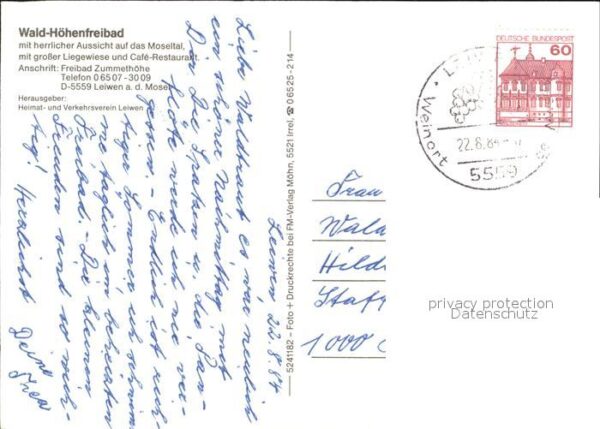 Wald-Höhenfreibad
mit herrlicher Aussicht auf das Moseltal,
mit großer Liegewiese und Café-Restaurant.
Anschrift: Freibad Zummethöhe
Telefon 06507-3009
D-5559 Leiwen a. d. Mosel
Herausgeber:
Heimat- und Verkehrsverein Leiwen
Leiwen 22.8.84
Liebe Waldtraut es war neulich
ein schöner Nachmittag mit
Dir. Die Spatzen u. die Pan-
flöte werde ich nie ver-
gessen. - Endlich ist rich-
tiger Sommer ich schwim-
me täglich im beheizten
Freibad. - Die kleinen
Freuden sind so wich-
tig! Herzlichst
Deine
5241182 - Foto + Druckrechte bei FM-Verlag Möhn, 5521 Irrel, ☎ 06525-214
DEUTSCHE BUNDESPOST
60
Weinort
22.8.84
5559
Frau
Wald
Hild
1000
privacy protection
Datenschutz